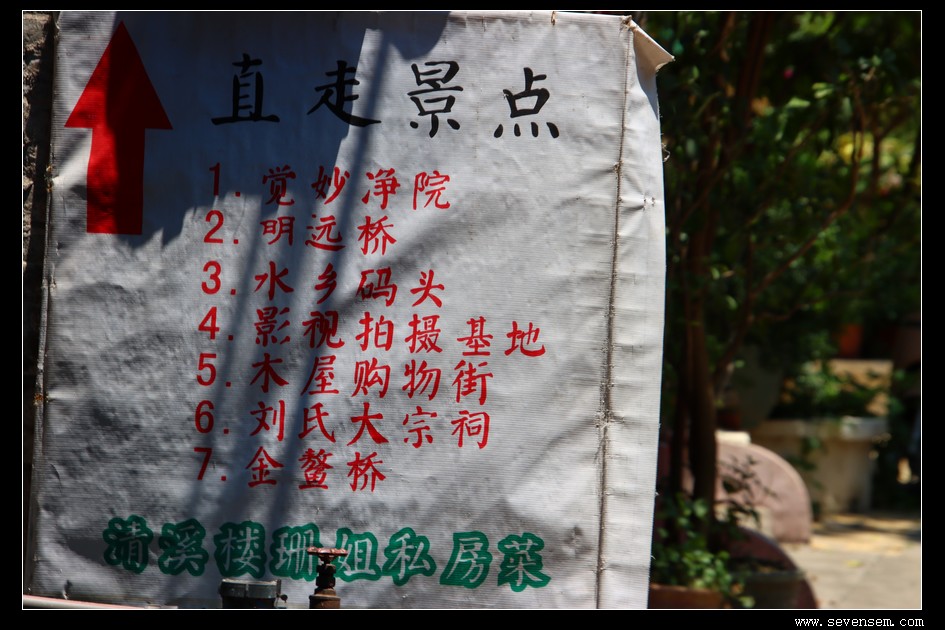 直走景点
1.觉妙净院
2.明远桥
3.水乡码头
4.影视拍摄基地
5.木屋购物街
6.刘氏大宗祠
7.金鳌桥
清溪楼珊姐私房菜
www.sevensem.com